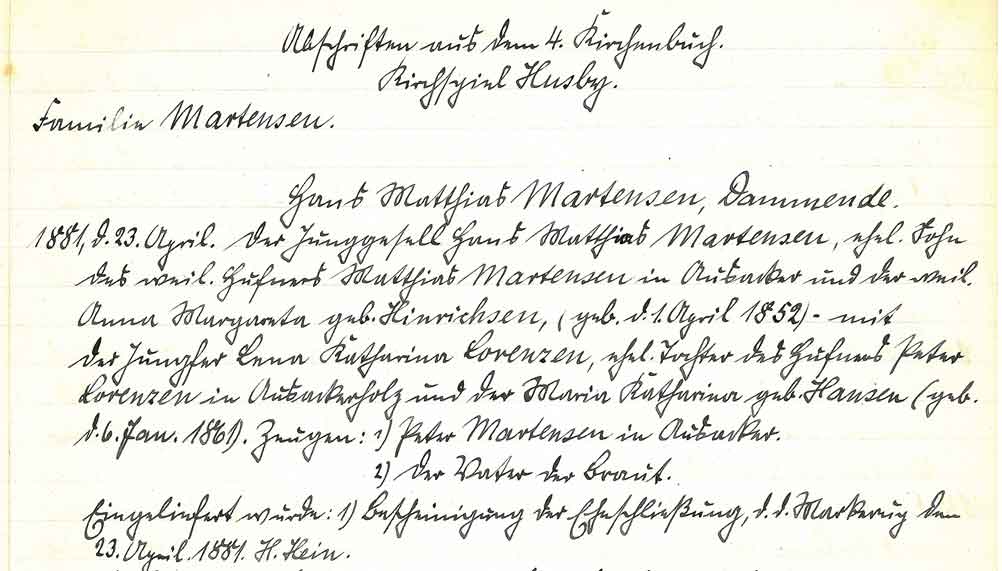 Abschriften aus dem 4. Kirchenbuch.
Kirchspiel Husby.
Familie Martensen.
Hans Matthias Martensen, Dammende.
1881, d. 23. April. Der Junggesell Hans Matthias Martensen, ehel. Sohn
des weil. Hufners Matthias Martensen in Ausacker und der weil.
Anna Margareta geb. Hinrichsen, (geb. d. 1. April 1852) - mit
der Jungfer Lena Katharina Lorenzen, ehel. Tochter des Hufners Peter
Lorenzen in Ausackerholz und der Maria Katharina geb. Hansen (geb.
d. 6. Jan. 1861). Zeugen: 1) Peter Martensen in Ausacker.
2) Der Vater der Braut.
Eingeliefert wurde: 1) Bescheinigung der Eheschließung, d. d. Markerup den
23. April. 1881. H. Hein.